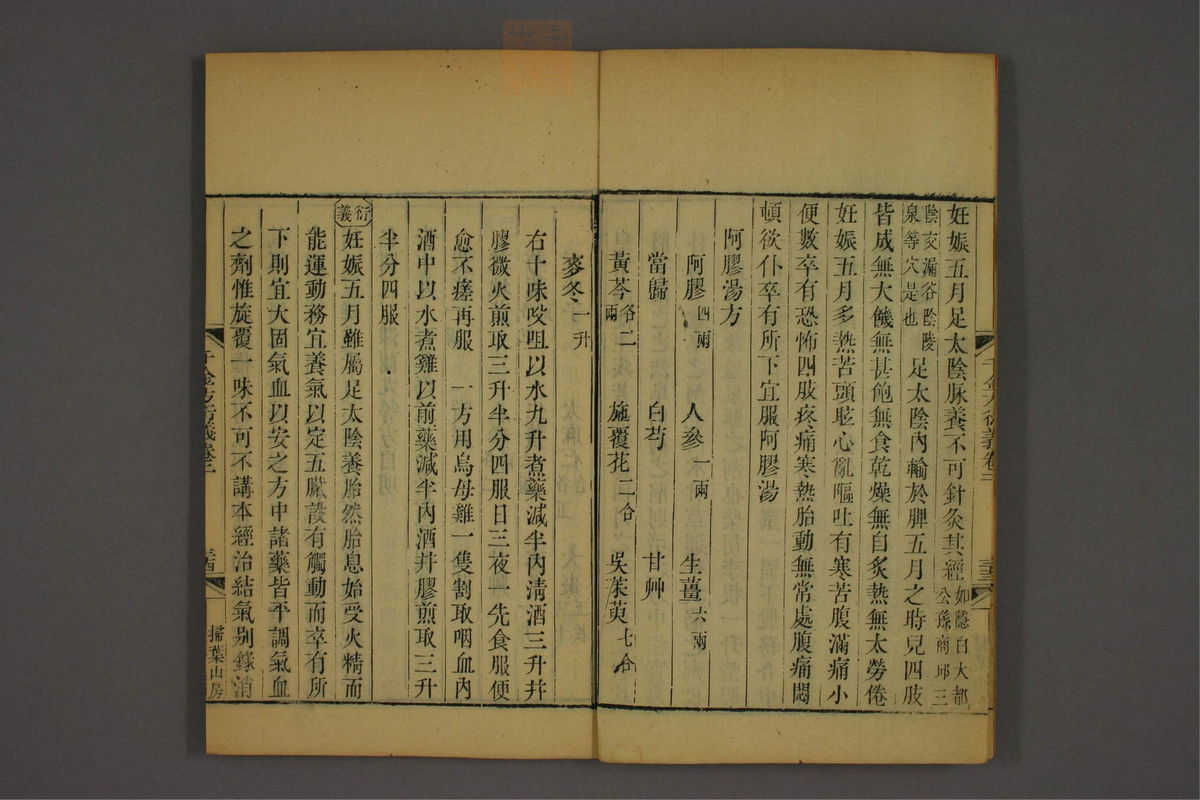 妊娠五月足太陰脉養不可針灸其經如隱白大都公孫商邱三
陰交漏谷陰陵泉等穴是也足太陰內輸於脾五月之時兒四肢
皆成無大饑無甚飽無食乾燥無自炙熱無太勞倦
妊娠五月多熱苦頭眩心亂嘔吐有寒苦腹滿痛小
便數卒有恐怖四肢疼痛寒熱胎動無常處腹痛悶
頓欲仆卒有所下宜服阿膠湯
阿膠湯方
阿膠四兩 人參一兩 生薑六兩
當歸 白芍 甘艸
黃芩各二兩 旋覆花二合 吳茱萸七合
麥冬一升
右十味㕮咀以水九升煮藥減半內淸酒三升幷
膠微火煎取三升半分四服日三夜一先食服便
愈不瘥再服 一方用烏母雞一隻割取咽血內
酒中以水煮雞以前藥減半內酒幷膠煎取三升
半分四服
衍義妊娠五月雖屬足太陰養胎然胎息始受火精而
能運動務宜養氣以定五臟設有觸動而卒有所
下則宜大固氣血以安之方中諸藥皆平調氣血
之劑惟旋覆一味不可不講本經治結氣别錄消
千金方衍義卷二
掃葉山房